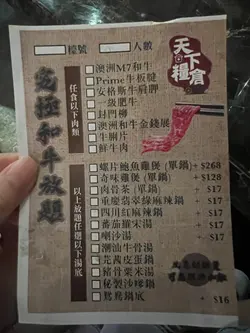 枱號 人數
天下糧倉
任食以下肉類
澳洲M7和牛
Prime牛板腱
安格斯牛肩胛
一級肥牛
封門柳
澳洲和牛金錢展
牛腩片
鮮牛肉
和牛放題
以上放題任選以下湯底
螺片鮑魚雞煲（單鍋）+$268
奇味雞煲（單鍋）+$128
肉骨茶（單鍋） +$17
重慶翡翠綠麻辣鍋 +$17
四川紅麻辣鍋 +$17
蕃茄獨羊湯 +$17
喇沙湯 +$17
潮汕牛骨湯
芫茜皮蛋鍋
豬骨粟米湯
秘製沙嗲鍋
鴛鴦鍋底 +$16